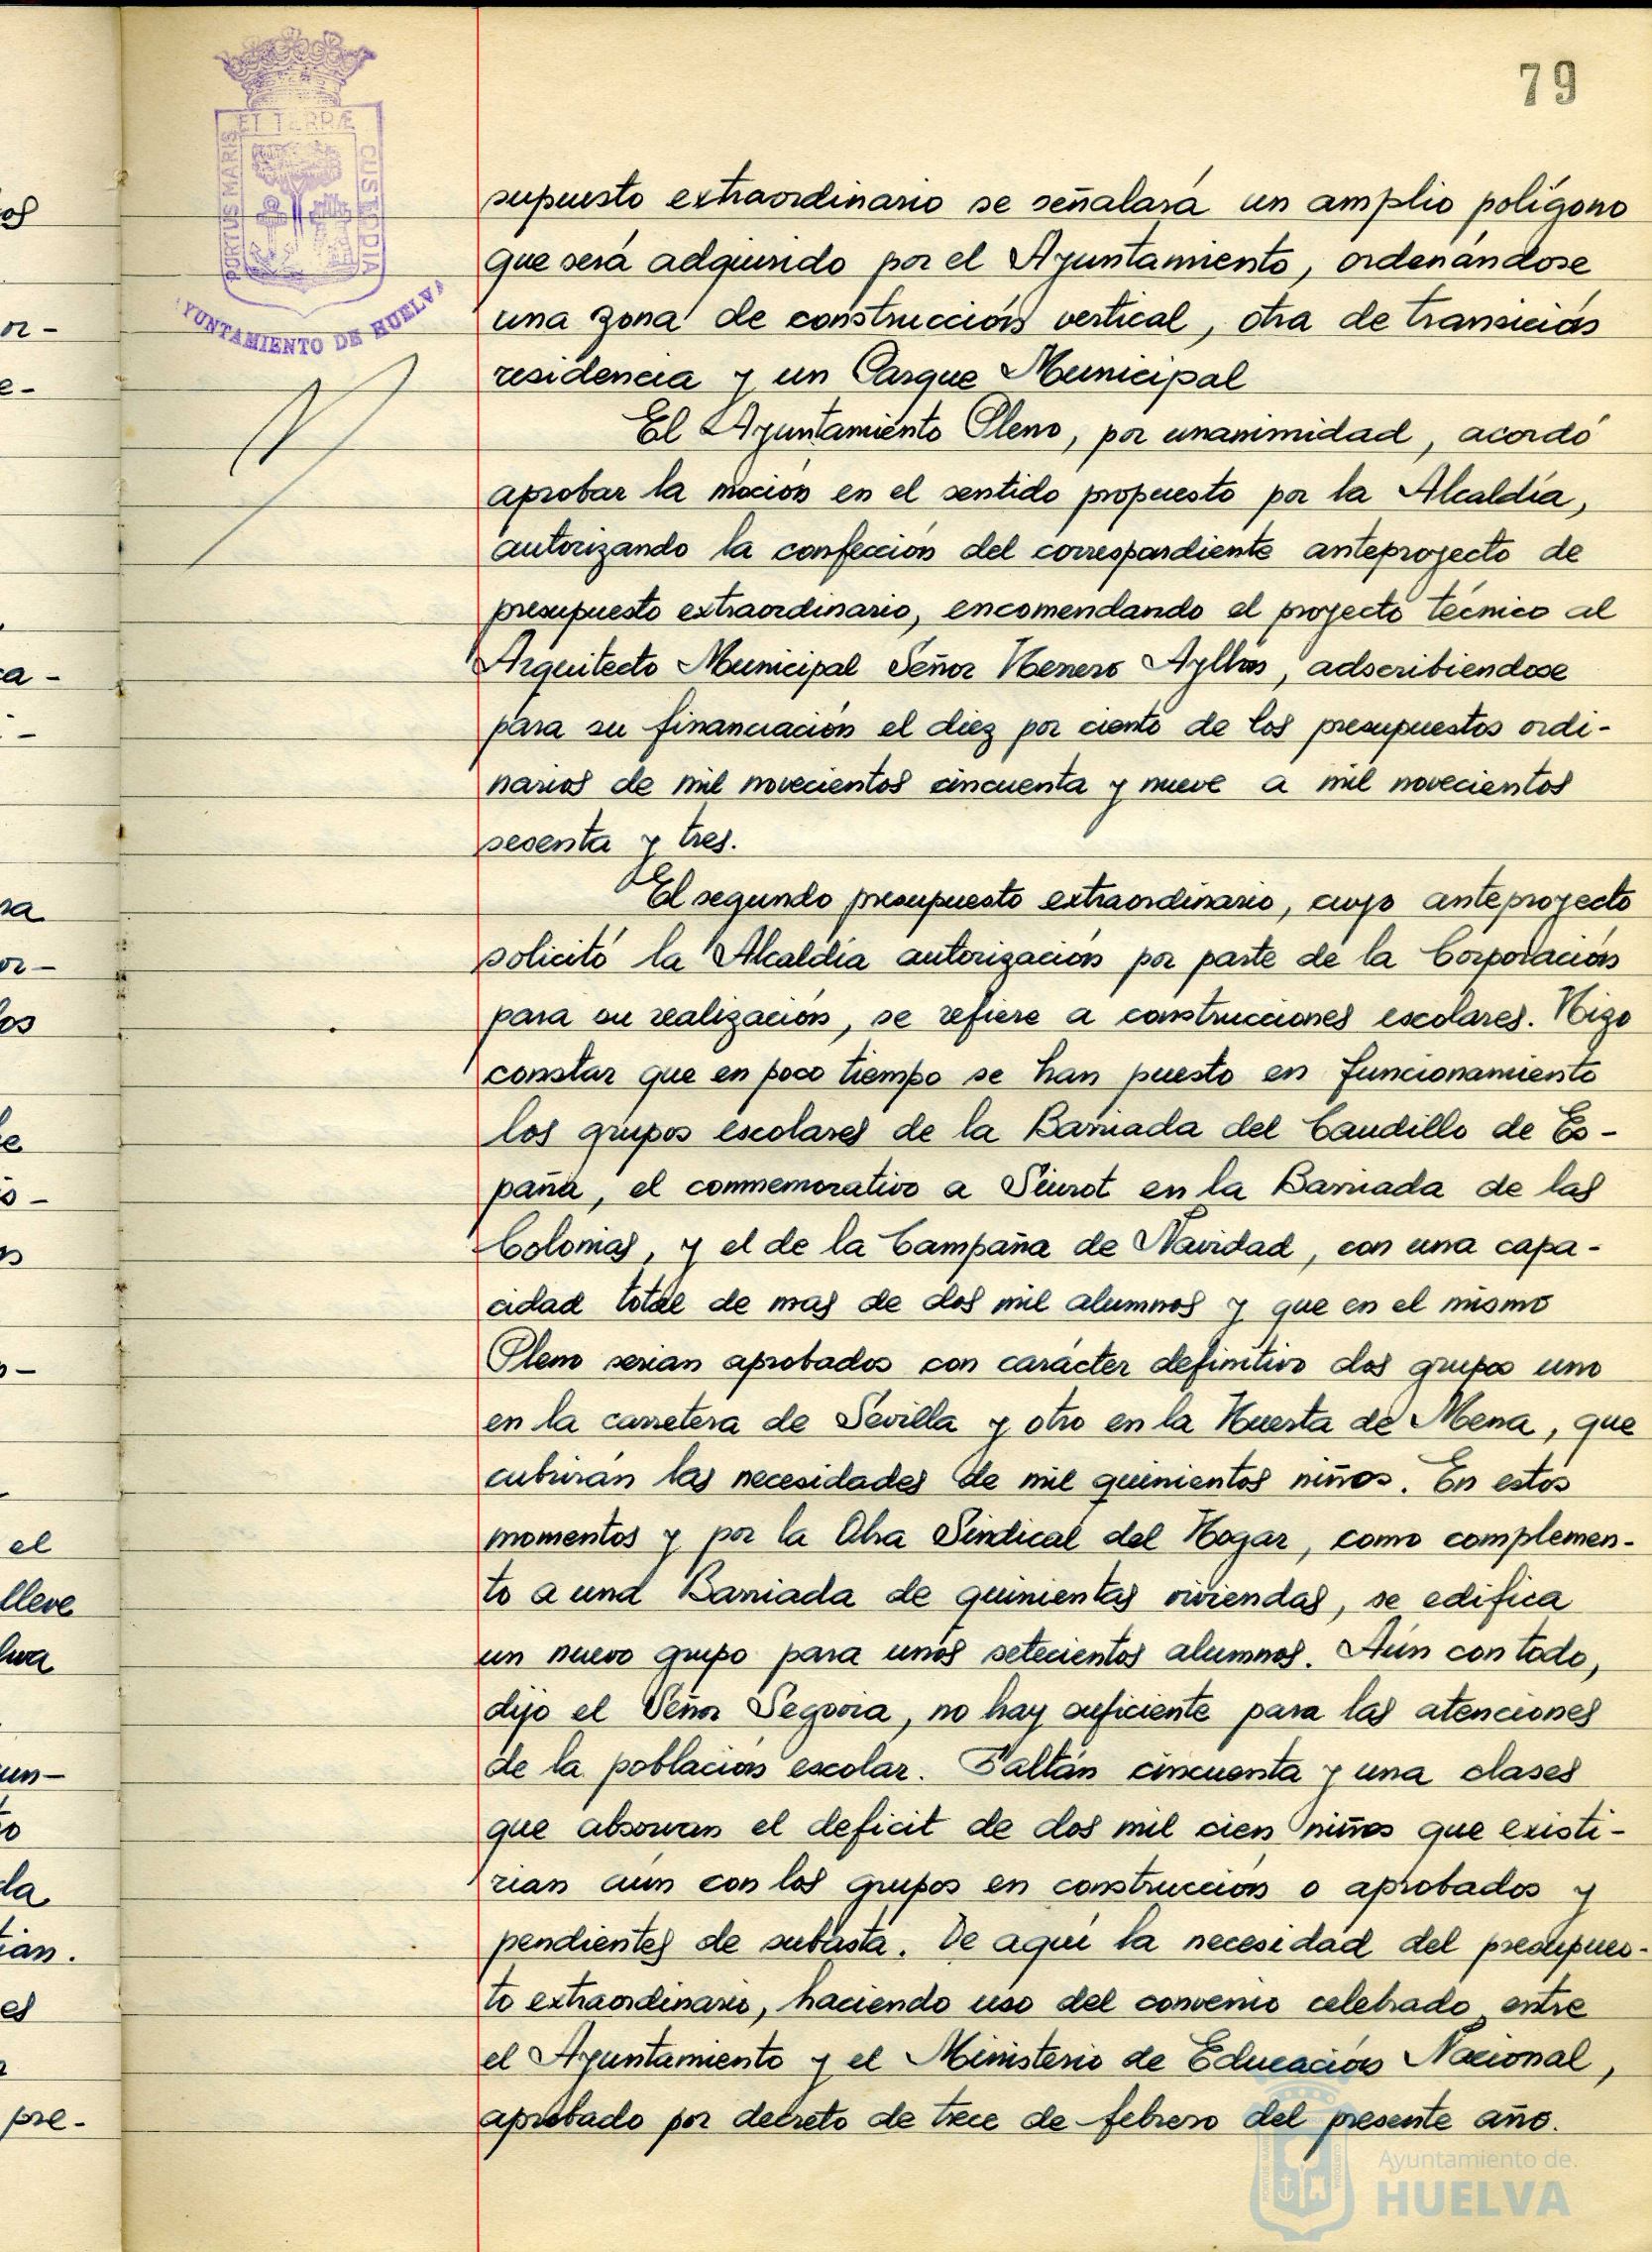 79
ET TERRÆ
PORTUS MARIS
CUSTODIA
AYUNTAMIENTO DE HUELVA
supuesto extraordinario se señalará un amplio polígono
que será adquirido por el Ayuntamiento, ordenándose
una zona de construcción vertical, otra de transición
residencia y un Parque Municipal
El Ayuntamiento Pleno, por unanimidad, acordó
aprobar la moción en el sentido propuesto por la Alcaldía,
autorizando la confección del correspondiente anteproyecto de
presupuesto extraordinario, encomendando el proyecto técnico al
Arquitecto Municipal Señor Herrero Ayllón, adscribiendose
para su financiación el diez por ciento de los presupuestos ordi-
narios de mil novecientos cincuenta y nueve a mil novecientos
sesenta y tres.
El segundo presupuesto extraordinario, cuyo anteproyecto
solicitó la Alcaldía autorización por parte de la Corporación
para su realización, se refiere a construcciones escolares. Hizo
constar que en poco tiempo se han puesto en funcionamiento
los grupos escolares de la Barriada del Caudillo de Es-
paña, el conmemorativo a Siurot en la Barriada de las
Colonias, y el de la Campaña de Navidad, con una capa-
cidad total de mas de dos mil alumnos y que en el mismo
Pleno serian aprobados con carácter definitivo dos grupos uno
en la carretera de Sevilla y otro en la Huerta de Mena, que
cubrirán las necesidades de mil quinientos niños. En estos
momentos y por la Obra Sindical del Hogar, como complemen-
to a una Barriada de quinientas viviendas, se edifica
un nuevo grupo para unos setecientos alumnos. Aún con todo,
dijo el Señor Segovia, no hay suficiente para las atenciones
de la población escolar. Faltán cincuenta y una clases
que absorvan el deficit de dos mil cien niños que existi-
rian aún con los grupos en construcción o aprobados y
pendientes de subasta. De aquí la necesidad del presupues-
to extraordinario, haciendo uso del convenio celebrado entre
el Ayuntamiento y el Ministerio de Educación Nacional,
aprobado por decreto de trece de febrero del presente año.
Ayuntamiento de
HUELVA